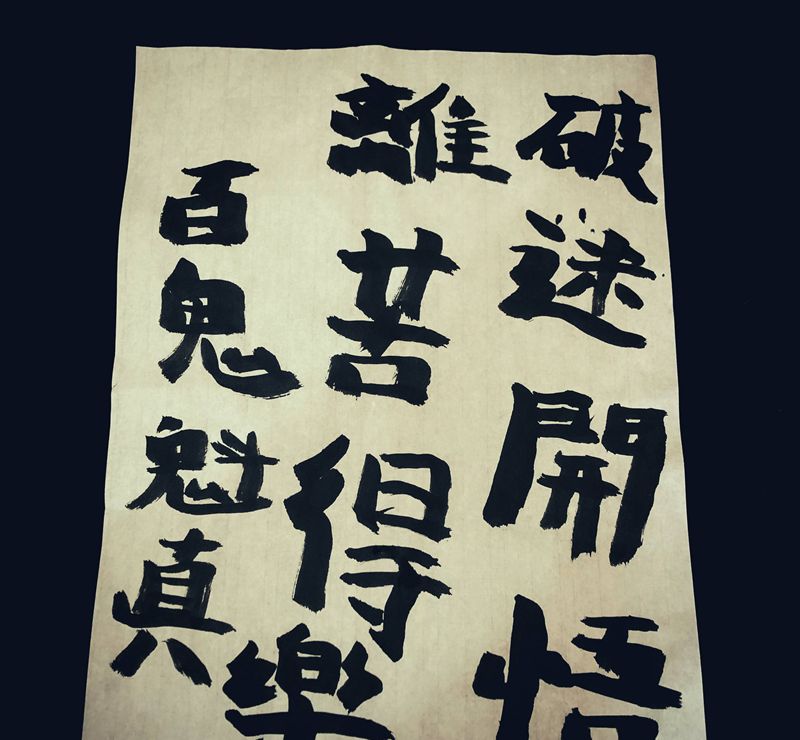 破迷開悟
離苦得樂
百鬼魁真